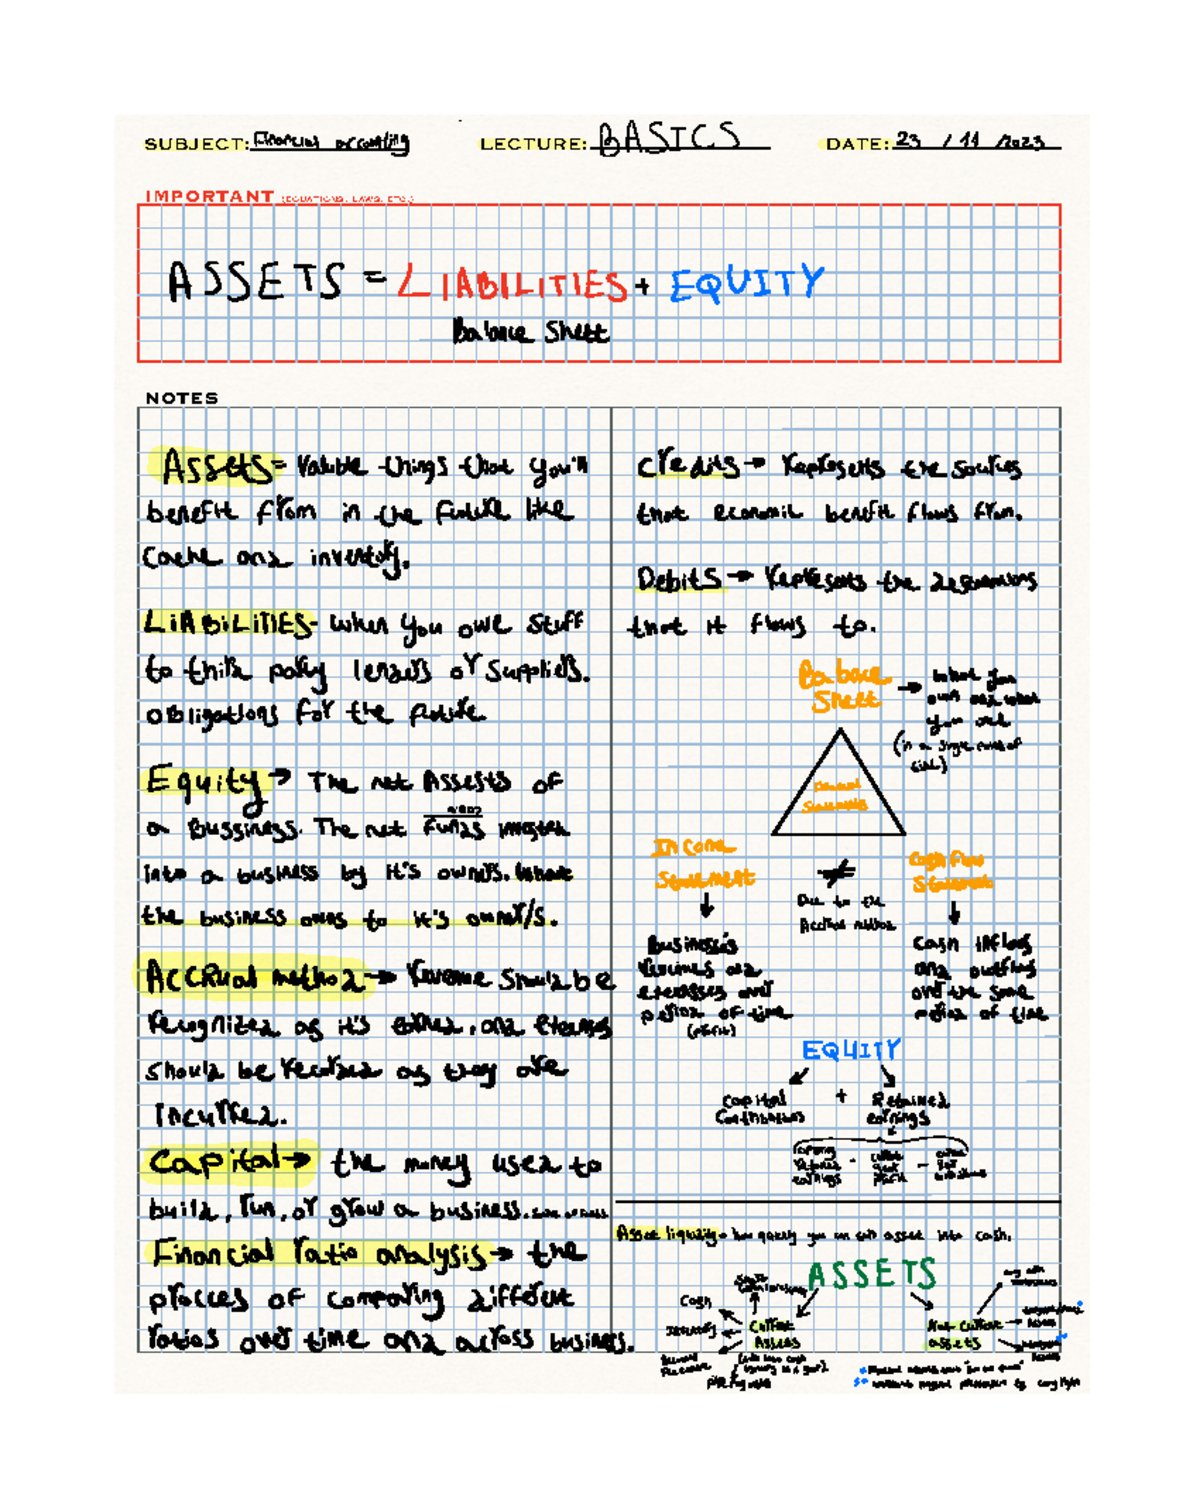 SUBJECT: Financial accounting
LECTURE: BASICS
DATE: 23 / 11 / 2023
IMPORTANT (EQUATIONS, LAWS, ETC.)
ASSETS = LIABILITIES + EQUITY
Balance Sheet
NOTES
Assets = Valuble things that you'll
benefit from in the future like
Cache and inventory.
LIABILITIES - When you owe stuff
to third party lenders or suppliers.
obligations for the future
Equity → The net Assests of
a Bussiness. The net funds invested
into a business by it's owners. What
the business owes to it's owner/s.
ACCRual method → Revenue should be
recognized as it's earned, and expenses
should be recorded as they are
Incurred.
Capital → the money used to
build, run, or grow a business.
Financial ratio analysis → the
procces of comparing different
ratios over time and across business.
Credits → Represents the sources
that economic benefit flows from.
Debits → Represents the destinations
that it flows to.
Balance
Sheet
→ What you
own and what
you owe
(in a single point of
time)
Financial
Statements
Income
Statement
≠
Due to the
Accrual method
Cash flow
Statement
Business's
revenues and
expenses over
period of time
(profit)
Cash inflows
and outflows
over the same
period of time
EQUITY
Capital
Contributions
+
Retained
earnings
Asset liquidity - how quickly you can turn asset into cash.
ASSETS
Cash
Inventory
Current
Assets
Non-Current
assets